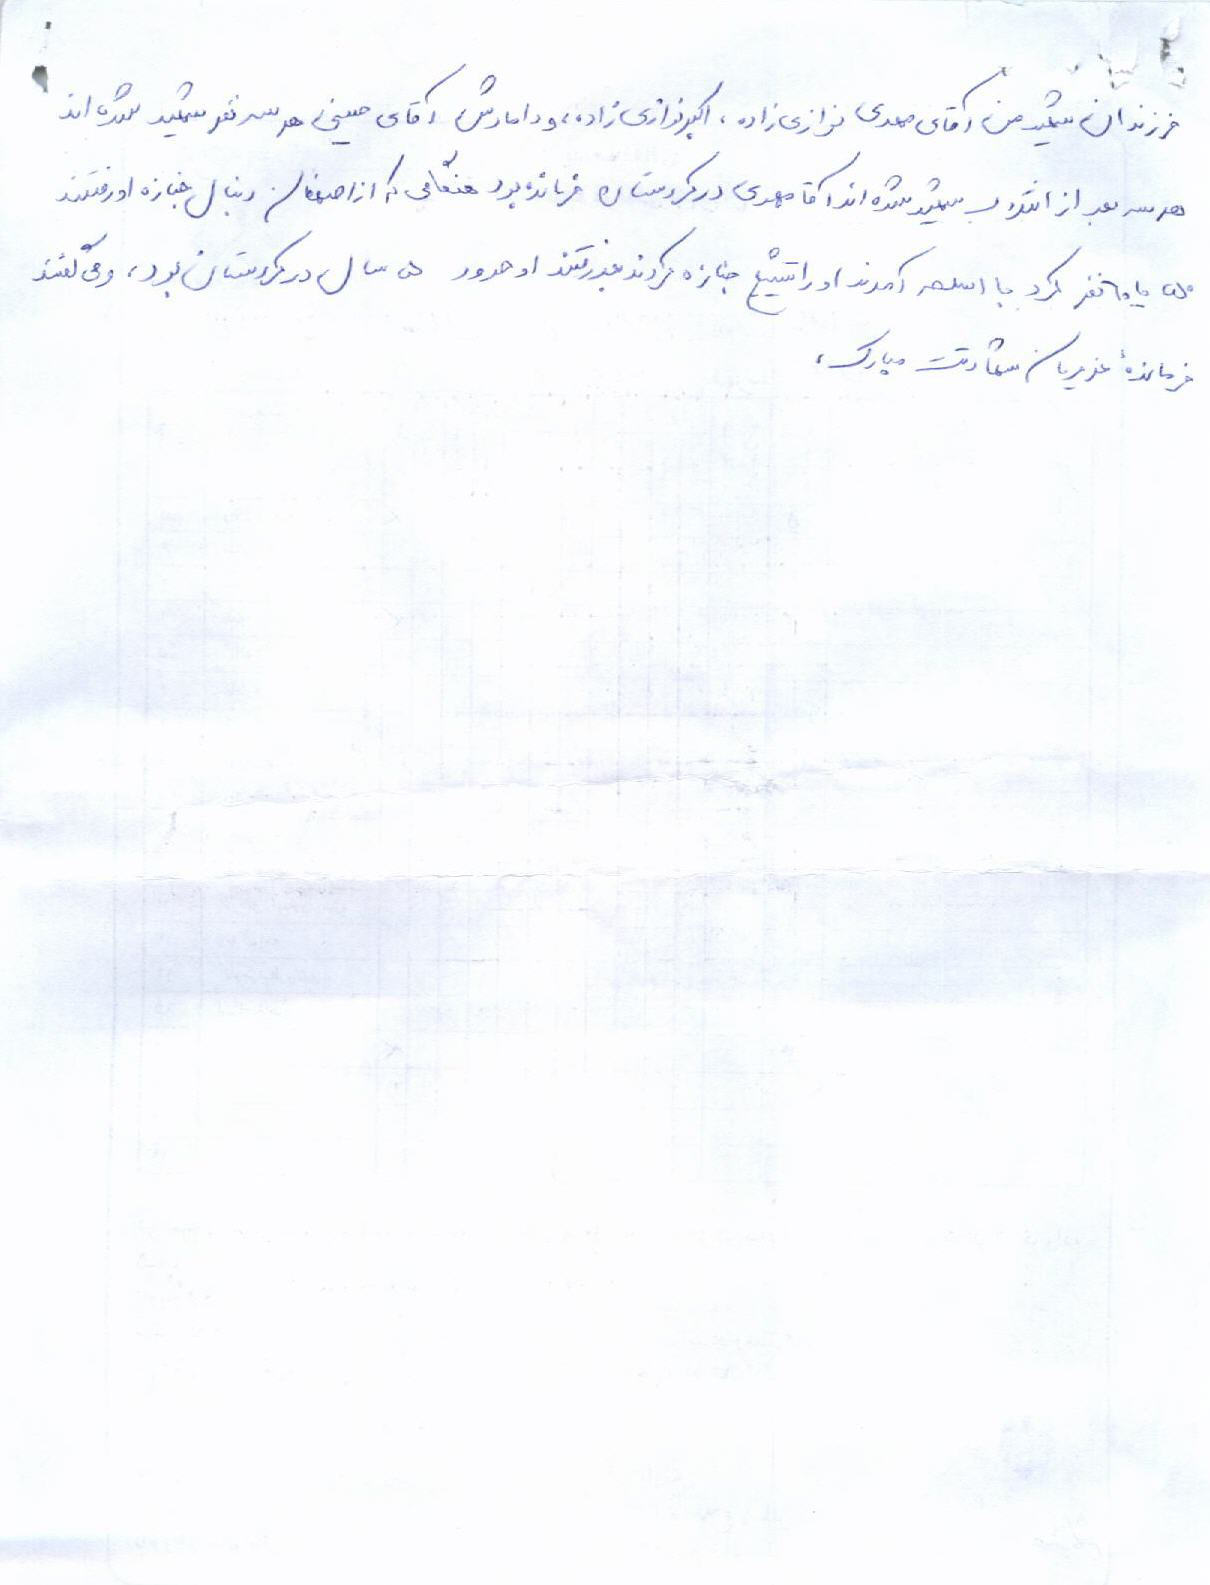 فرزندان شهید من، آقای مهدی نزاری‌زاده، اکبر نزاری‌زاده، و دامادش آقای حسینی هر سه نفر شهید شده‌اند
هر سه بعد از انقلاب شهید شده‌اند آقا مهدی در کردستان فرمانده بود هنگامی که از اصفهان دنبال جنازه او رفتند
۵۰ یا ۶۰ نفر کرد با اسلحه آمدند او را تشییع جنازه کردند او حدود ۵ سال در کردستان بود، و می‌گفتند
فرماندهٔ عزیزمان شهادتت مبارک،